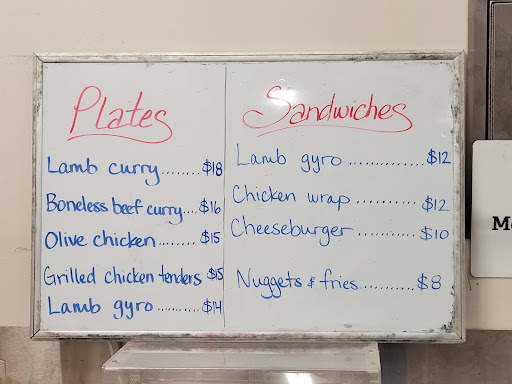 Plates
Lamb curry........$18
Boneless beef curry....$16
Olive chicken........$15
Grilled chicken tenders $15
Lamb gyro..........$14
Sandwiches
Lamb gyro..............$12
Chicken wrap...........$12
Cheeseburger..........$10
Nuggets & fries..........$8